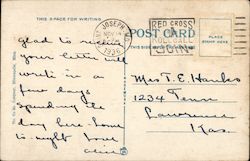 THIS SPACE FOR WRITING
glad to receive
your letter will
write in a
few days
Spending the
day here home
to-night love
POST CARD
THIS SIDE
PLACE
STAMP HERE
ST. JOSEPH
NOV
RED CROSS
ROLL CALL
JOIN
Mrs T. E. Hanks
1234 Tenn
Lawrence
Kas.